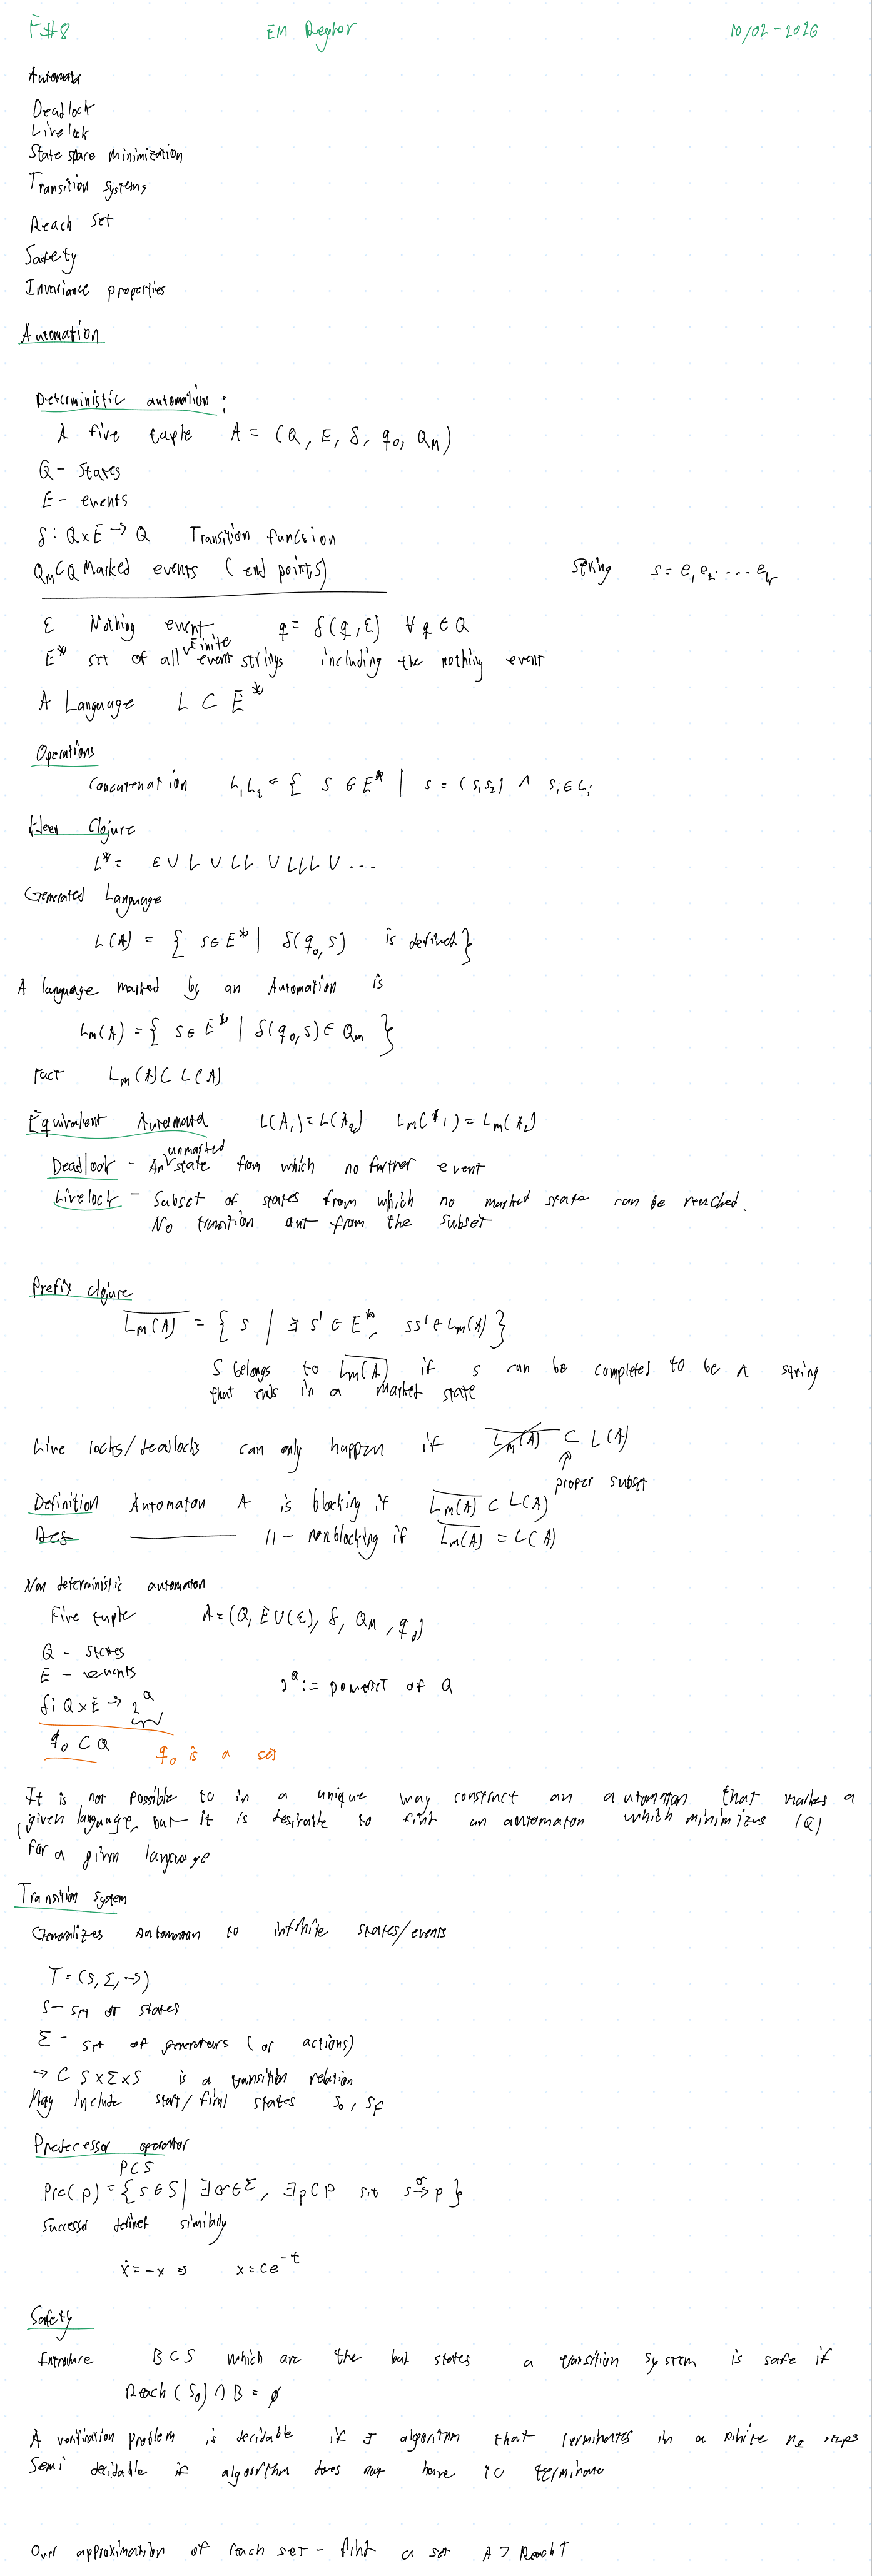 F#8 EM Regler 10/02-2026
Automata
Deadlock
Livelock
State space minimization
Transition systems
Reach set
Safety
Invariance properties
Automation
Deterministic automation:
A five tuple A = (Q, E, δ, q₀, Q_M)
Q - states
E - events
δ: Q×E → Q Transition function
Q_M ⊂ Q Marked events (end points) string s = e₁e₂.....e_k
ε Nothing event q = δ(q, ε) ∀ q ∈ Q
E* set of all finite event strings including the nothing event
A Language L ⊂ E*
Operations
Concatenation L₁L₂ = { s ∈ E* | s = (s₁s₂) ∧ s_i ∈ L_i
Kleen Clojure
L* = ε ∪ L ∪ LL ∪ LLL ∪ ...
Generated Language
L(A) = { s ∈ E* | δ(q₀, s) is defined }
A language marked by an Automation is
L_m(A) = { s ∈ E* | δ(q₀, s) ∈ Q_m }
Fact L_m(A) ⊂ L(A)
Equivalent Automata L(A₁) = L(A₂) L_m(A₁) = L_m(A₂)
Deadlock - An unmarked state from which no further event
Livelock - Subset of states from which no marked state can be reached.
No transition out from the subset
Prefix clojure
\overline{L_m(A)} = { s | ∃ s' ∈ E*, ss' ∈ L_m(A) }
S belongs to \overline{L_m(A)} if s can be completed to be a string
that ends in a market state
Live locks/deadlocks can only happen if \overline{L_m(A)} ⊂ L(A)
↑ proper subset
Definition Automaton A is blocking if \overline{L_m(A)} ⊂ L(A)
———— 11 - nonblocking if \overline{L_m(A)} = L(A)
Non deterministic automaton
Five tuple A = (Q, E∪(ε), δ, Q_M, q₀)
Q - states
E - events 2^Q := powerset of Q
δ: Q×E → 2^Q
q₀ ⊂ Q q₀ is a set
It is not possible to in a unique way construct an automaton that marks a
given language, but it is desirable to find an automaton which minimizes |Q|
for a given language
Transition system
Generalizes Automaton to infinite states/events
T = (S, Σ, →)
S - set of states
Σ - set of generators (or actions)
→ ⊂ S×Σ×S is a transition relation
May include start/final states S₀, S_F
Predecessor operator
P⊂S
Pre(p) = { s ∈ S | ∃σ∈Σ, ∃p⊂P s.t. s →^σ p }
Successor defined similarly
ẋ = -x ⇒ x = ce^{-t}
Safety
Introduce B⊂S which are the bad states a transition system is safe if
Reach(S₀) ∩ B = ∅
A verification problem is decidable if ∃ algorithm that terminates in a finite steps
Semi decidable if algorithm does not have to terminate
Over approximation of reach set - find a set A ⊃ Reach